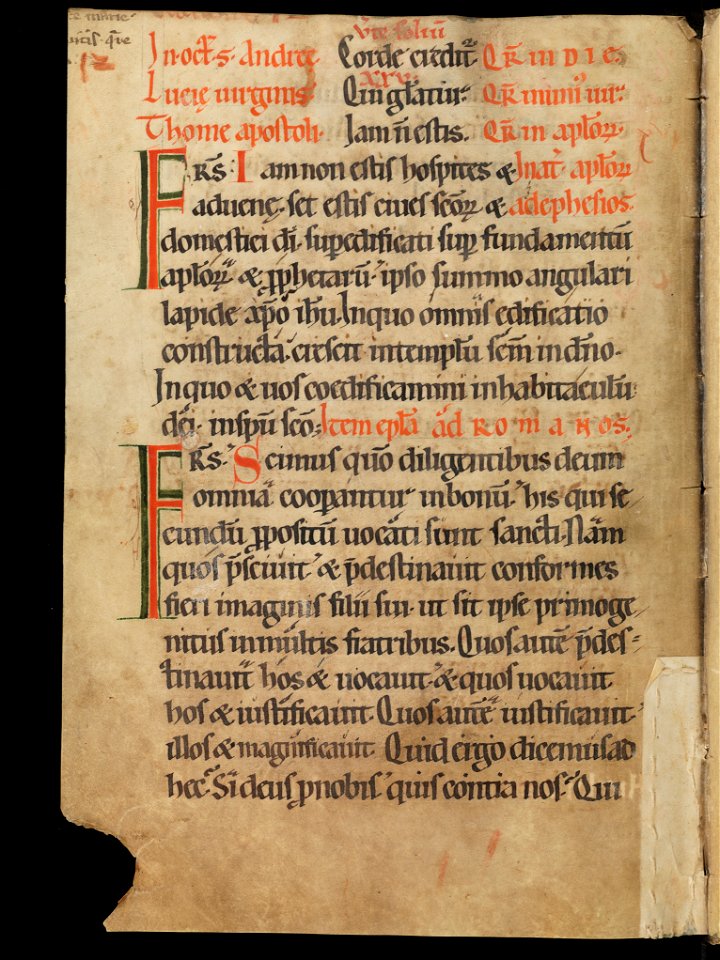 In oct̄ s. Andree Corde credit̄ Q̄R in DIE
Lucię uirginis Qui gl̄atur Q̄R
Thome apostoli. Iam n̄ estis. Q̄R in ap̄lor̄.
FRS̄. Iam non estis hospites & In nat̄ ap̄lor̄
aduenę. set estis ciues sc̄or̄ & ad ephesios.
domestici dī. sup̄edificati sup̄ fundamentū
ap̄lor̄ & p̄phetarū. ipso summo angulari
lapide ih̄u. Inquo omnis edificatio
constructa. crescit intemplū sc̄m in dn̄o.
Inquo & uos coedificamini inhabitaculū
dei. insp̄u sc̄o. Item ep̄la ad ROMANOS.
FRS̄. Scimus quō diligentibus deum
omnia coop̄antur inbonū. his qui se
cundū p̄positū uocati sunt sancti. Nam
quos p̄sciuit & p̄destinauit conformes
fieri imaginis filii sui. ut sit ipse primoge
nitus inmultis fratribus. Quos autē p̄des-
tinauit hos & uocauit. & quos uocauit
hos & iustificauit. Quos autē iustificauit.
illos & magnificauit. Quid ergo dicemus ad
hec. Si deus p̄ nobis quis contra nos. Qui